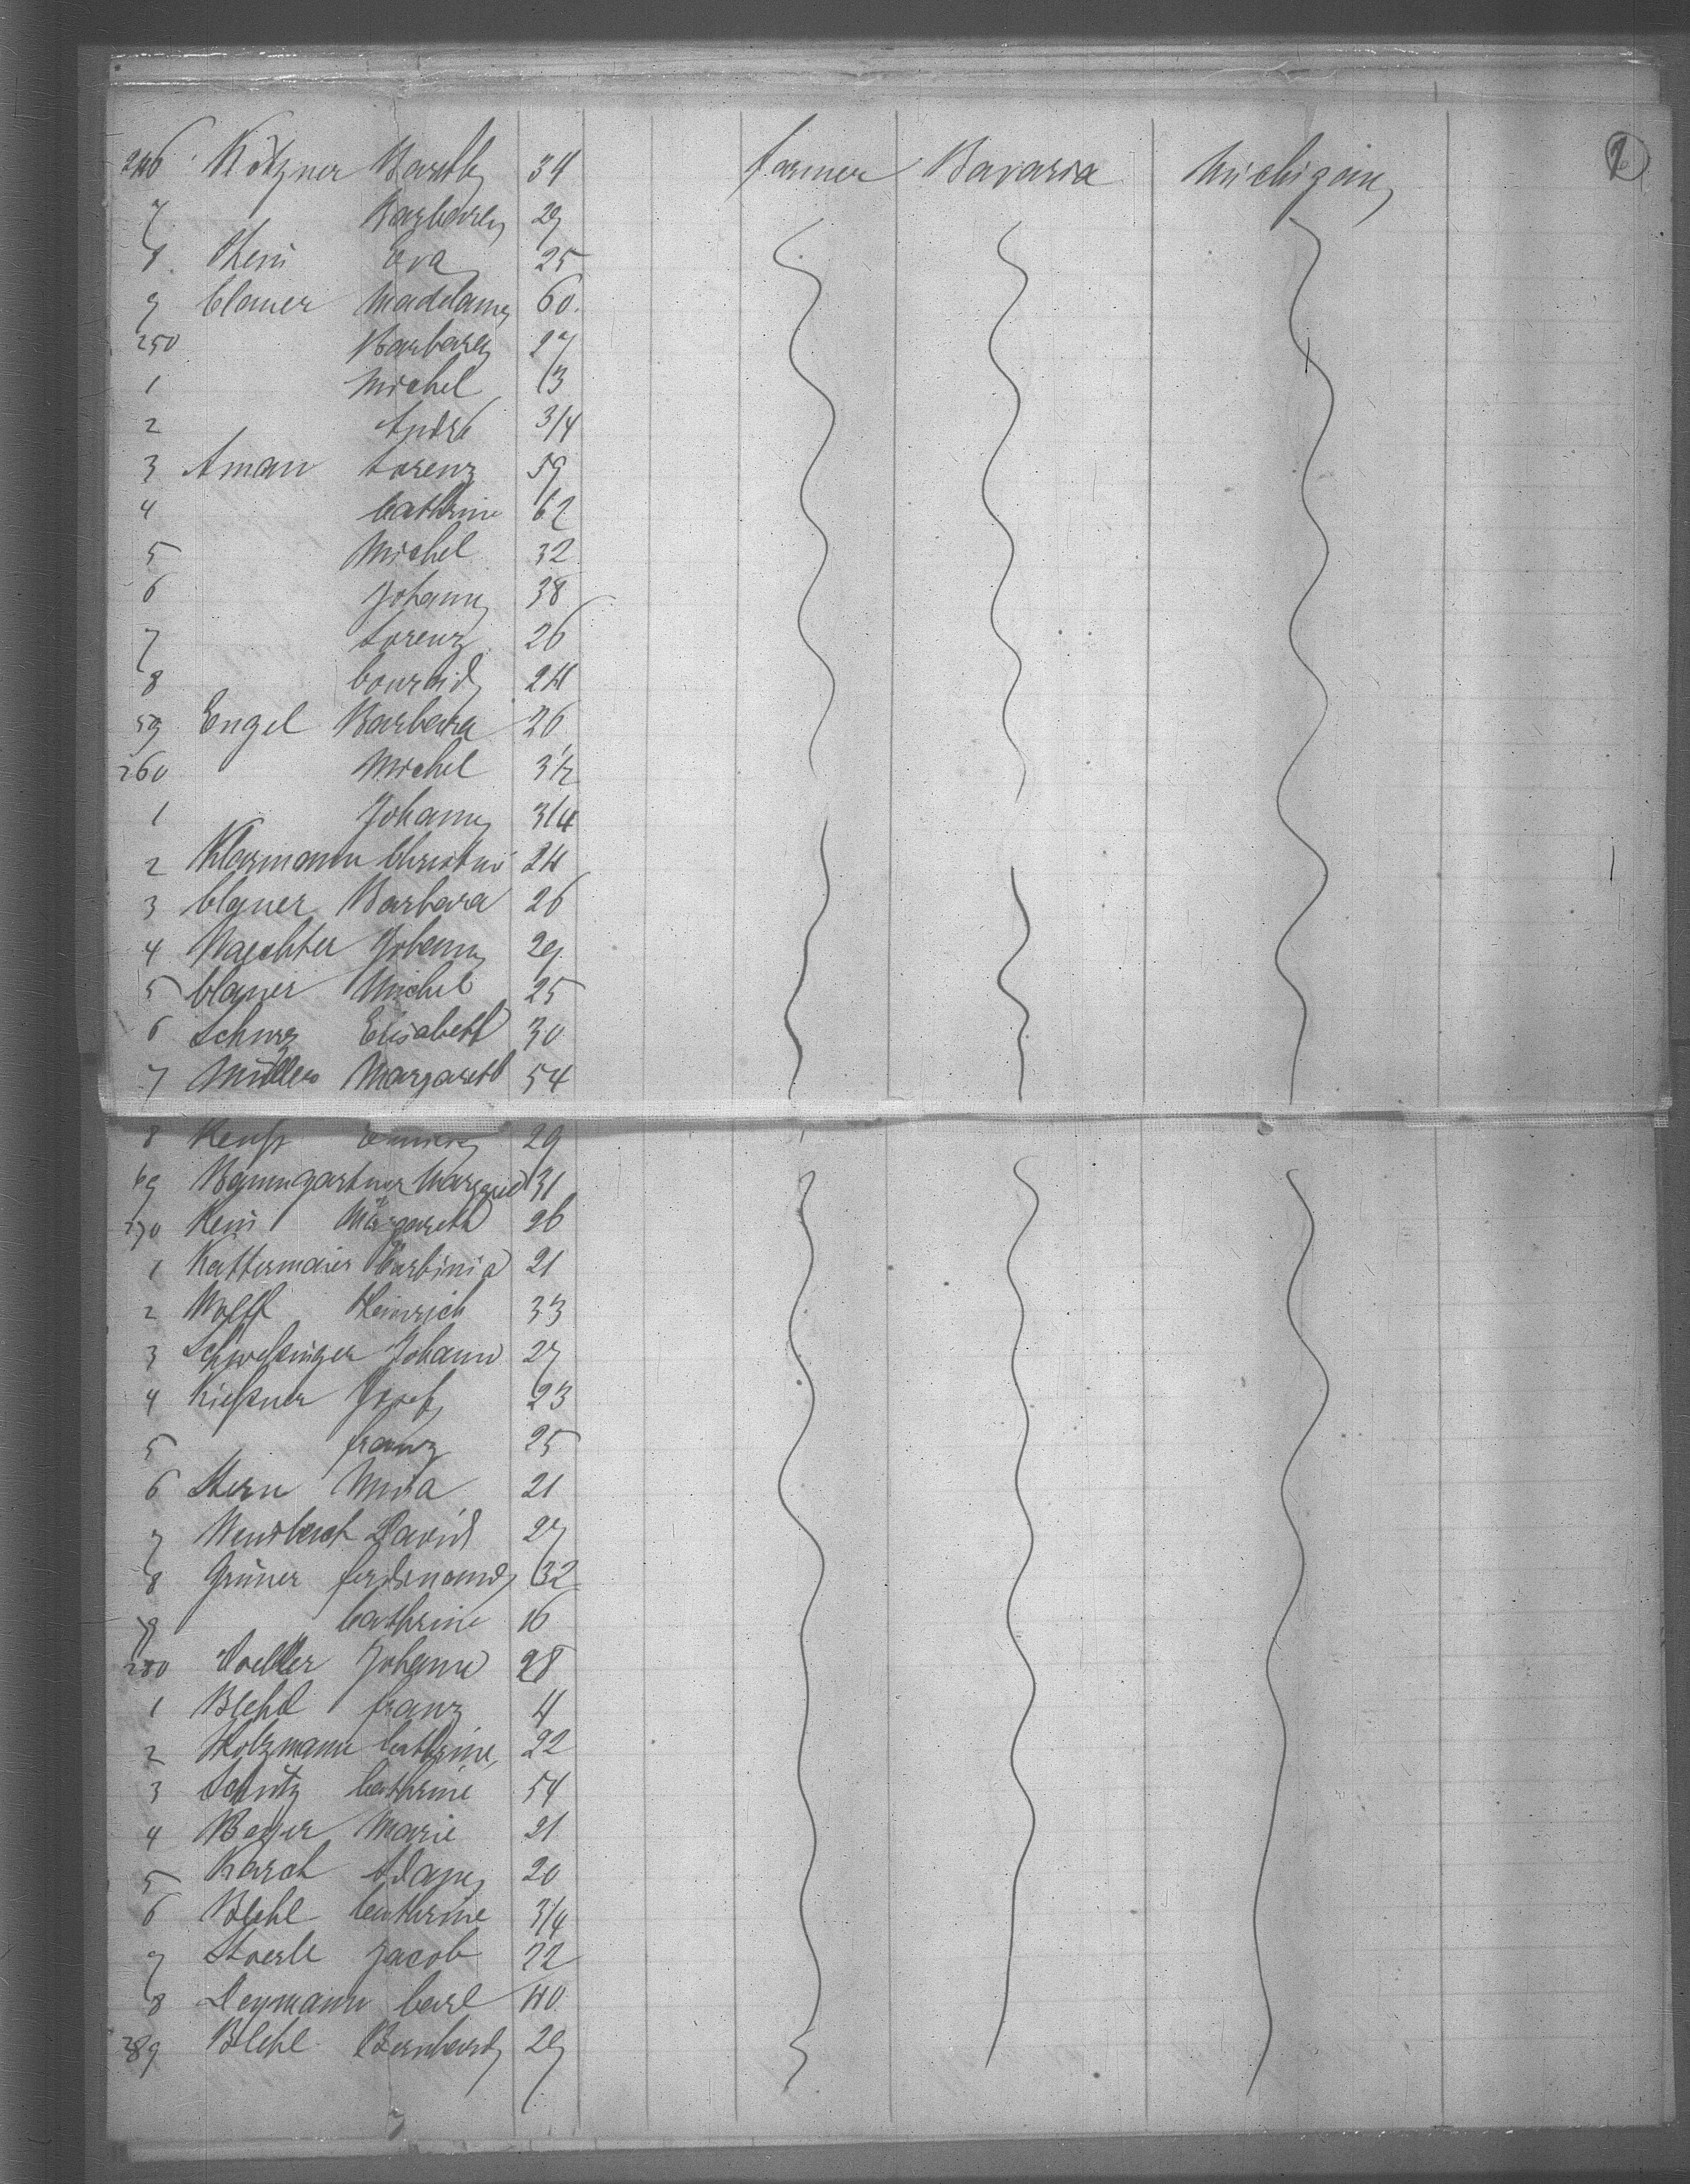 246 Kötzner Barth 34 farmer Bavaria Michigan
7 Barbara 29
8 Hein Eva 25
9 Clauer Maddama 60
250 Barbara 27
1 Michel 13
2 André 3/4
3 Aman Lorenz 59
4 Cathrine 62
5 Michel 32
6 Johann 38
7 Lorenz 26
8 Conrad 24
59 Engel Barbara 26
260 Michel 3 1/2
1 Johann 3/4
2 Klarmann Christin 24
3 Claner Barbara 26
4 Waechter Johann 29
5 Claner Michel 25
6 Schurz Elisabeth 30
7 Müller Margareth 54
8 29
69 Baumgartner 31
270 Hein Margareth 26
1 Kattermaier 21
2 Wolff Heinrich 33
3 Schweßinger Johann 27
4 Kießner Josef 23
5 franz 25
6 Stern 21
7 David 27
8 Grüner ferdinand 32
9 Cathrine 16
280 Johann 28
1 Blehl franz 4
2 Holzmann Cathrine 22
3 Schütz Cathrine 54
4 Beyer Marie 21
5 Karch Adam 20
6 Blehl Cathrine 3/4
7 Stoerle Jacob 22
8 Leymann Carl 40
289 Blehl Bernhard 29